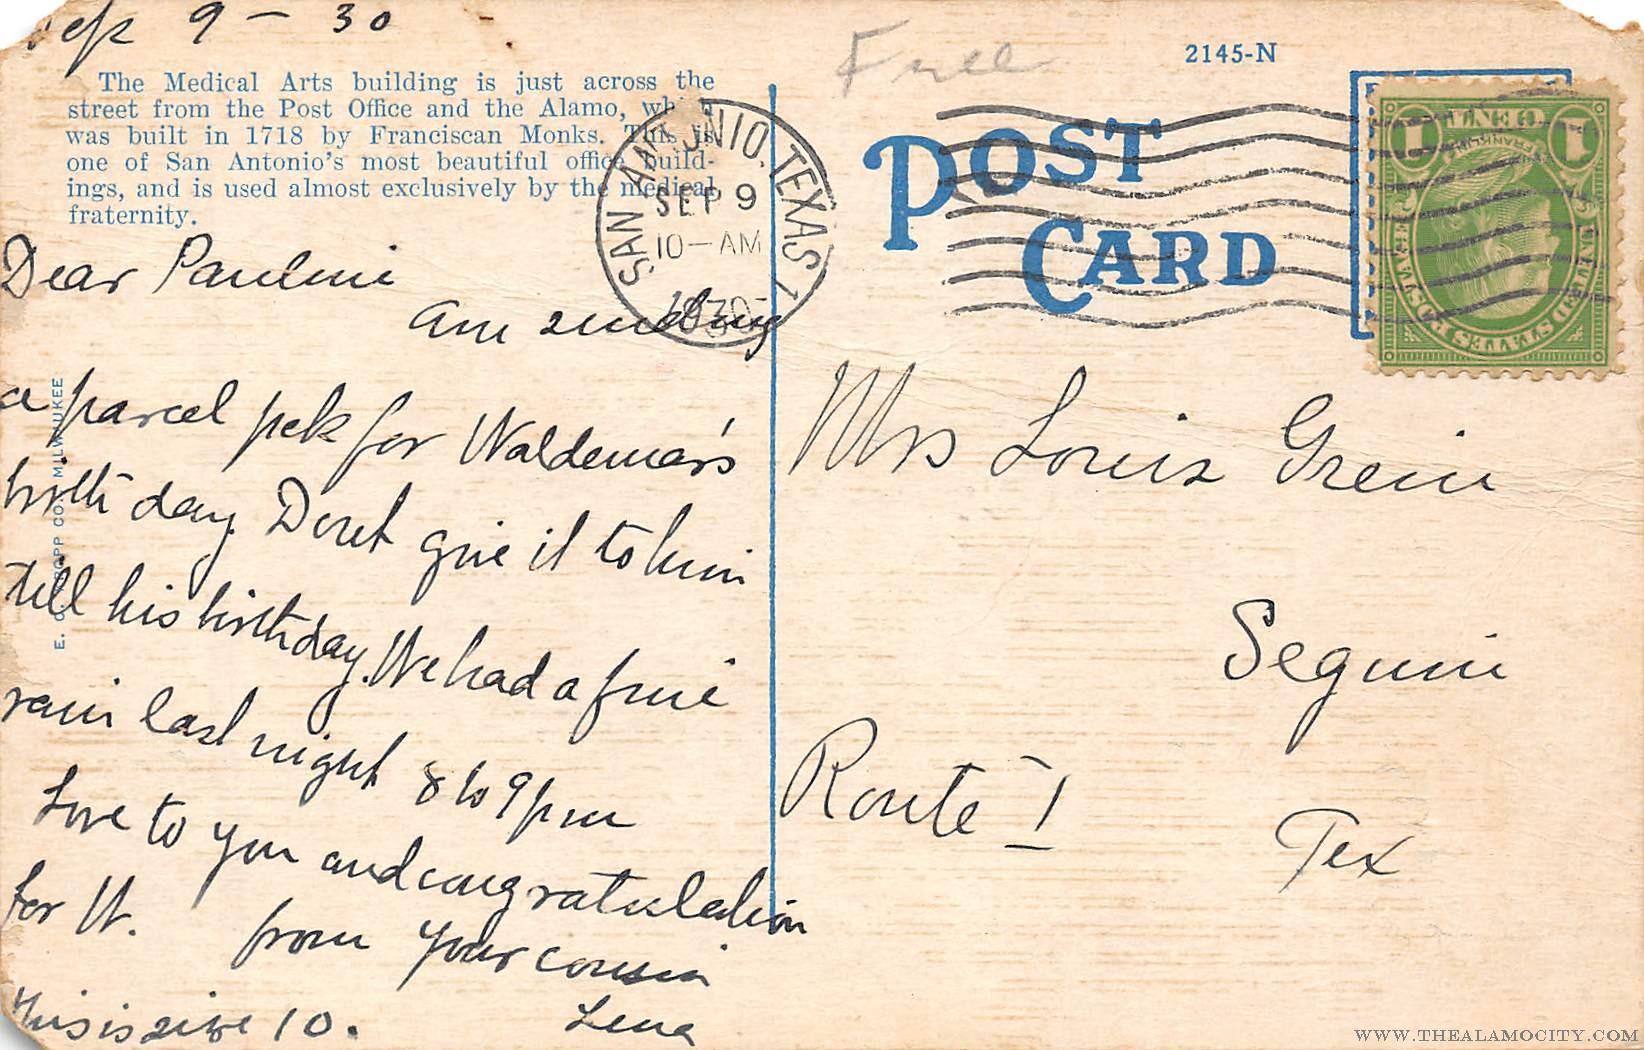 Sep 9 - 30
The Medical Arts building is just across the
street from the Post Office and the Alamo, which
was built in 1718 by Franciscan Monks. This is
one of San Antonio's most beautiful office build-
ings, and is used almost exclusively by the medical
fraternity.
Dear Pauline
Am sending
a parcel pck for Waldemar's
birth day. Dont give it to him
till his birthday. We had a fine
rain last night 8 to 9 pm
Love to you and congratulation
for W. from your cousin
this is size 10. Lena
E. C. KROPP CO. MILWAUKEE
Free
2145-N
POST
CARD
SAN ANTONIO, TEXAS 1
SEP 9
10-AM
1930
UNITED STATES POSTAGE
FRANKLIN
1 ONE 1
Mrs Louis Grein
Seguin
Route 1
Tex
WWW.THEALAMOCITY.COM